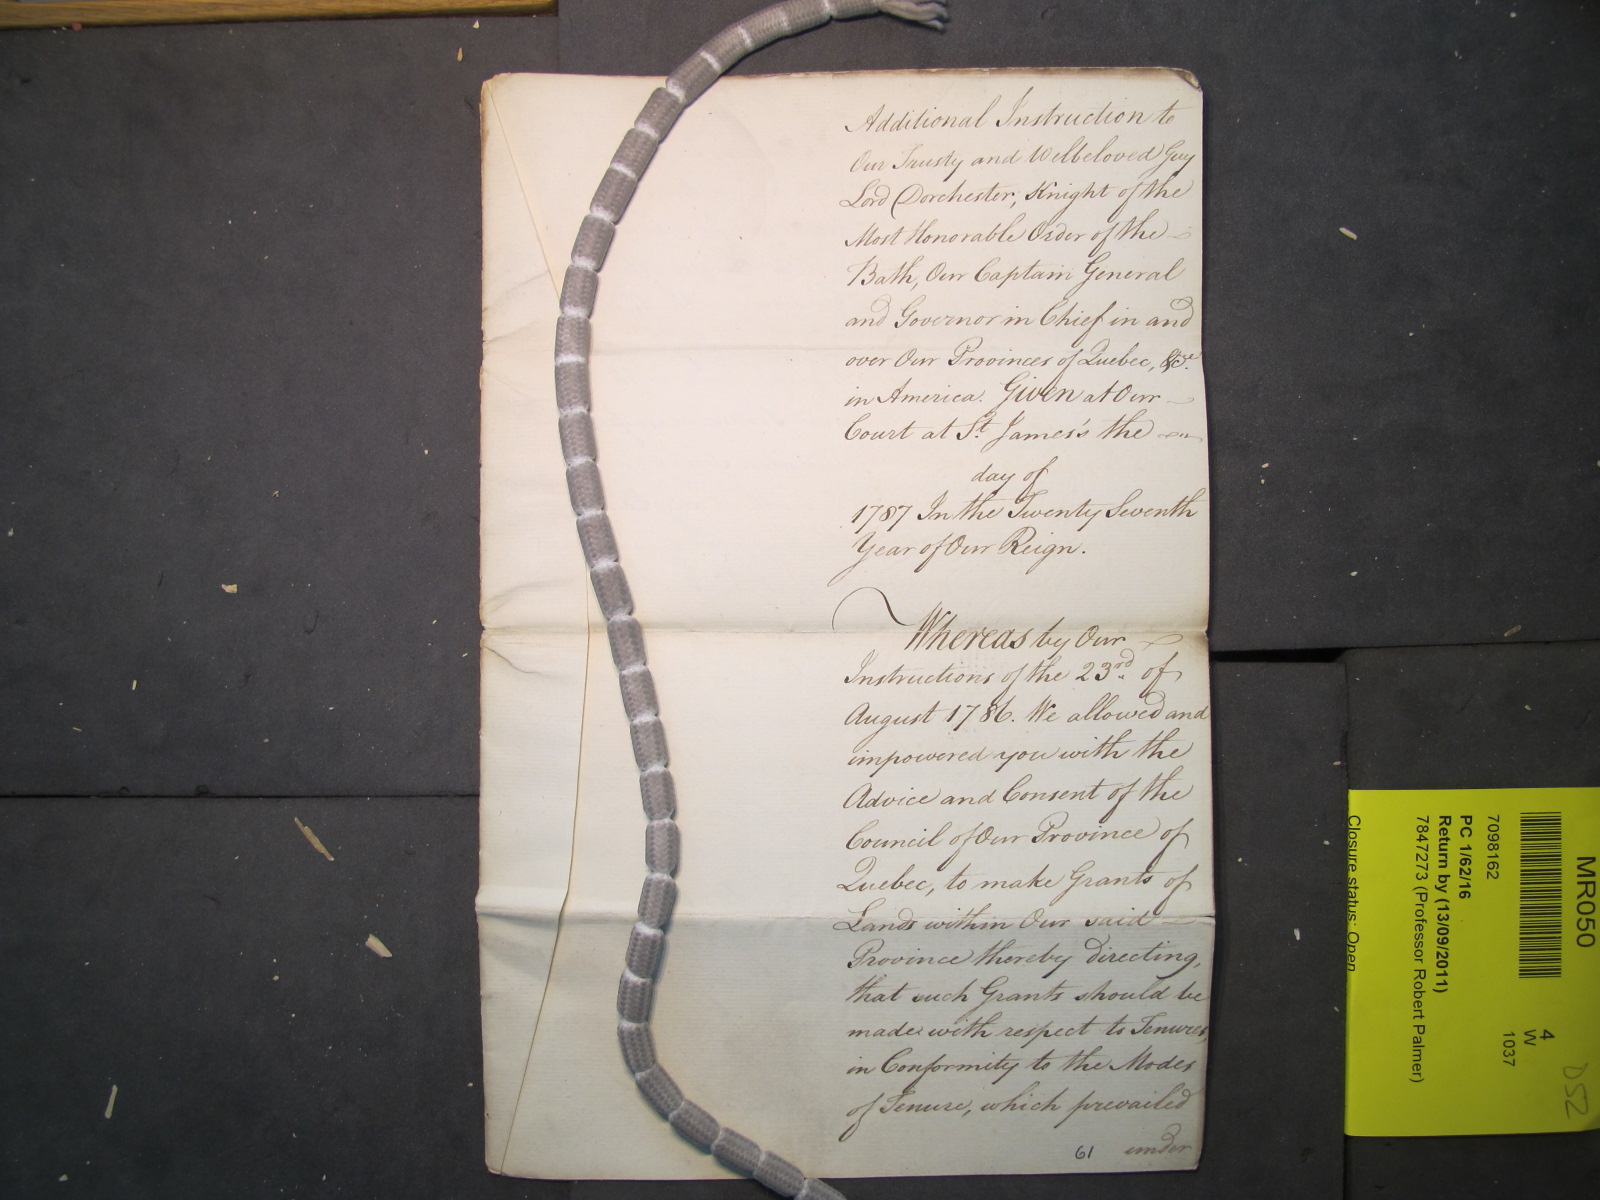 Additional Instruction to
Our Trusty and Welbeloved Guy
Lord Dorchester, Knight of the
Most Honorable Order of the
Bath, Our Captain General
and Governor in Chief in and
over Our Provinces of Quebec, &ca.
in America. Given at Our
Court at St. James's the
day of
1787 In the Twenty Seventh
Year of Our Reign.
Whereas by Our
Instructions of the 23rd. of
August 1786. We allowed and
impowered you with the
Advice and Consent of the
Council of Our Province of
Quebec, to make Grants of
Lands within Our said
Province thereby directing,
that such Grants should be
made with respect to Tenures,
in Conformity to the Modes
of Tenure, which prevailed
61 under
MR050
4
W
1037
DS2
7098162
PC 1/62/16
Return by (13/09/2011)
7847273 (Professor Robert Palmer)
Closure status: Open